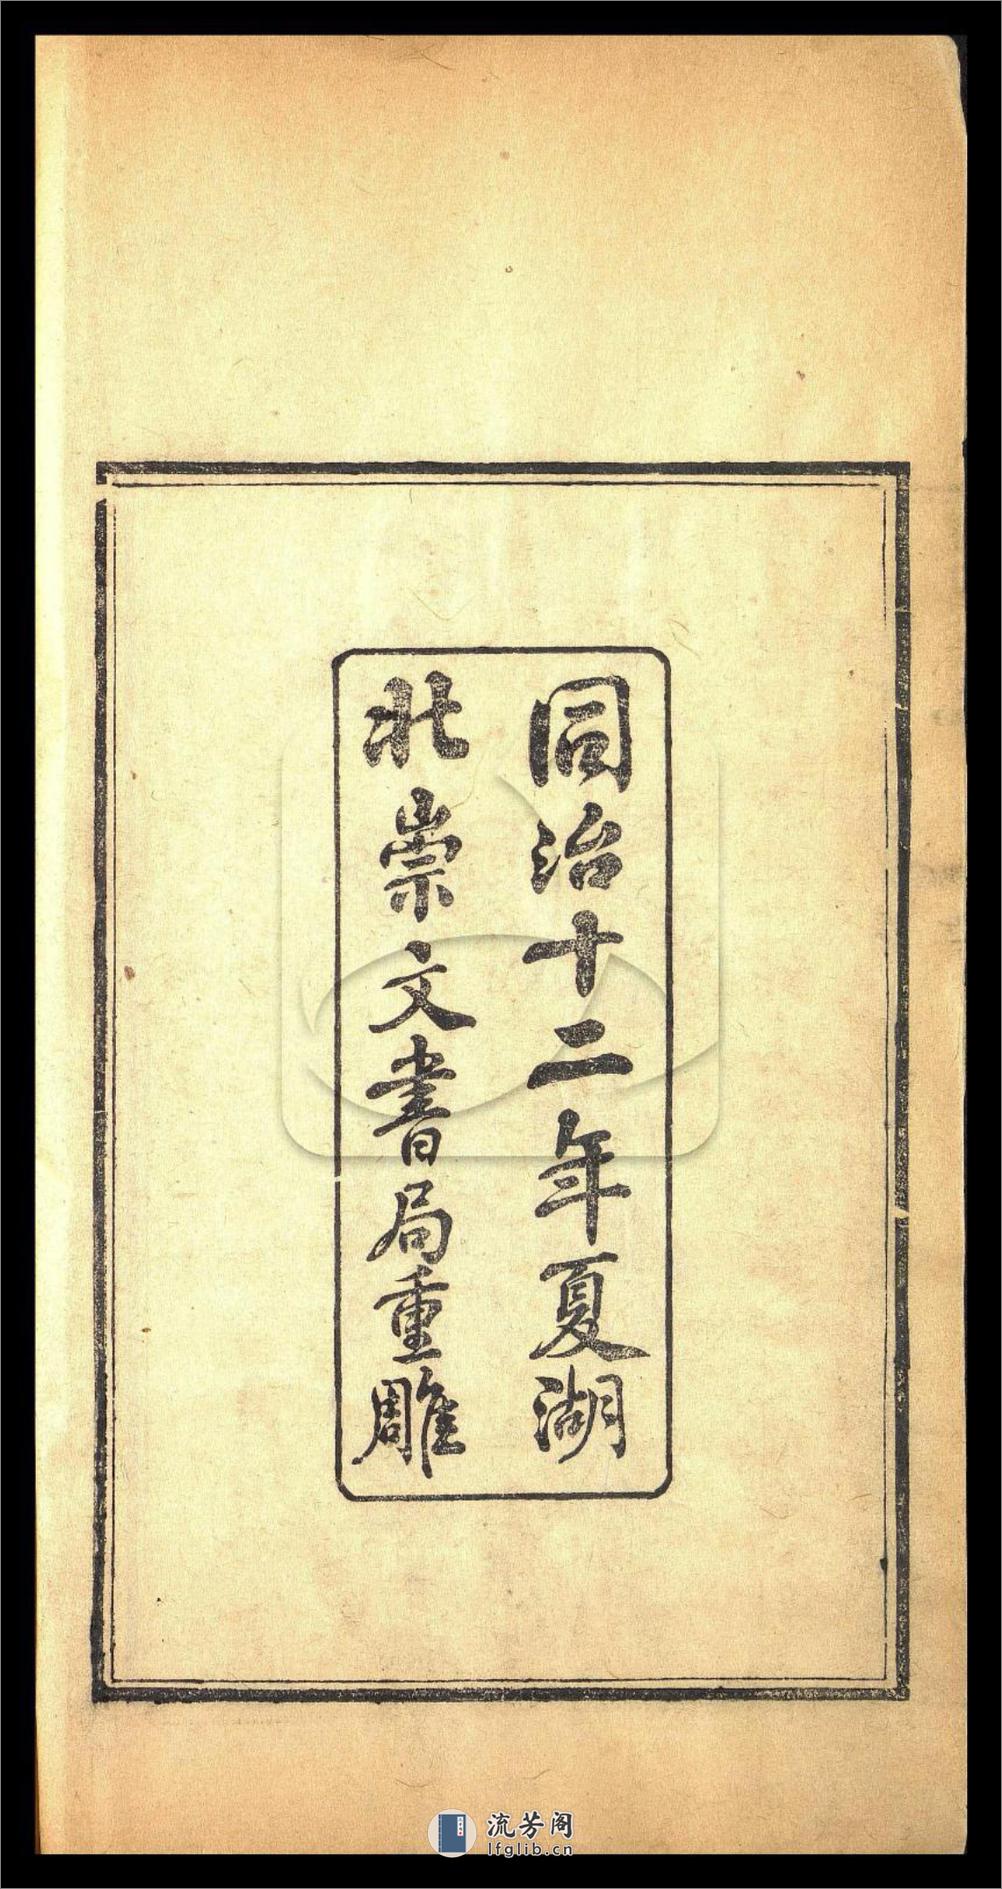 同治十二年夏湖
北崇文書局重雕
流芳阁
lfglib.cn